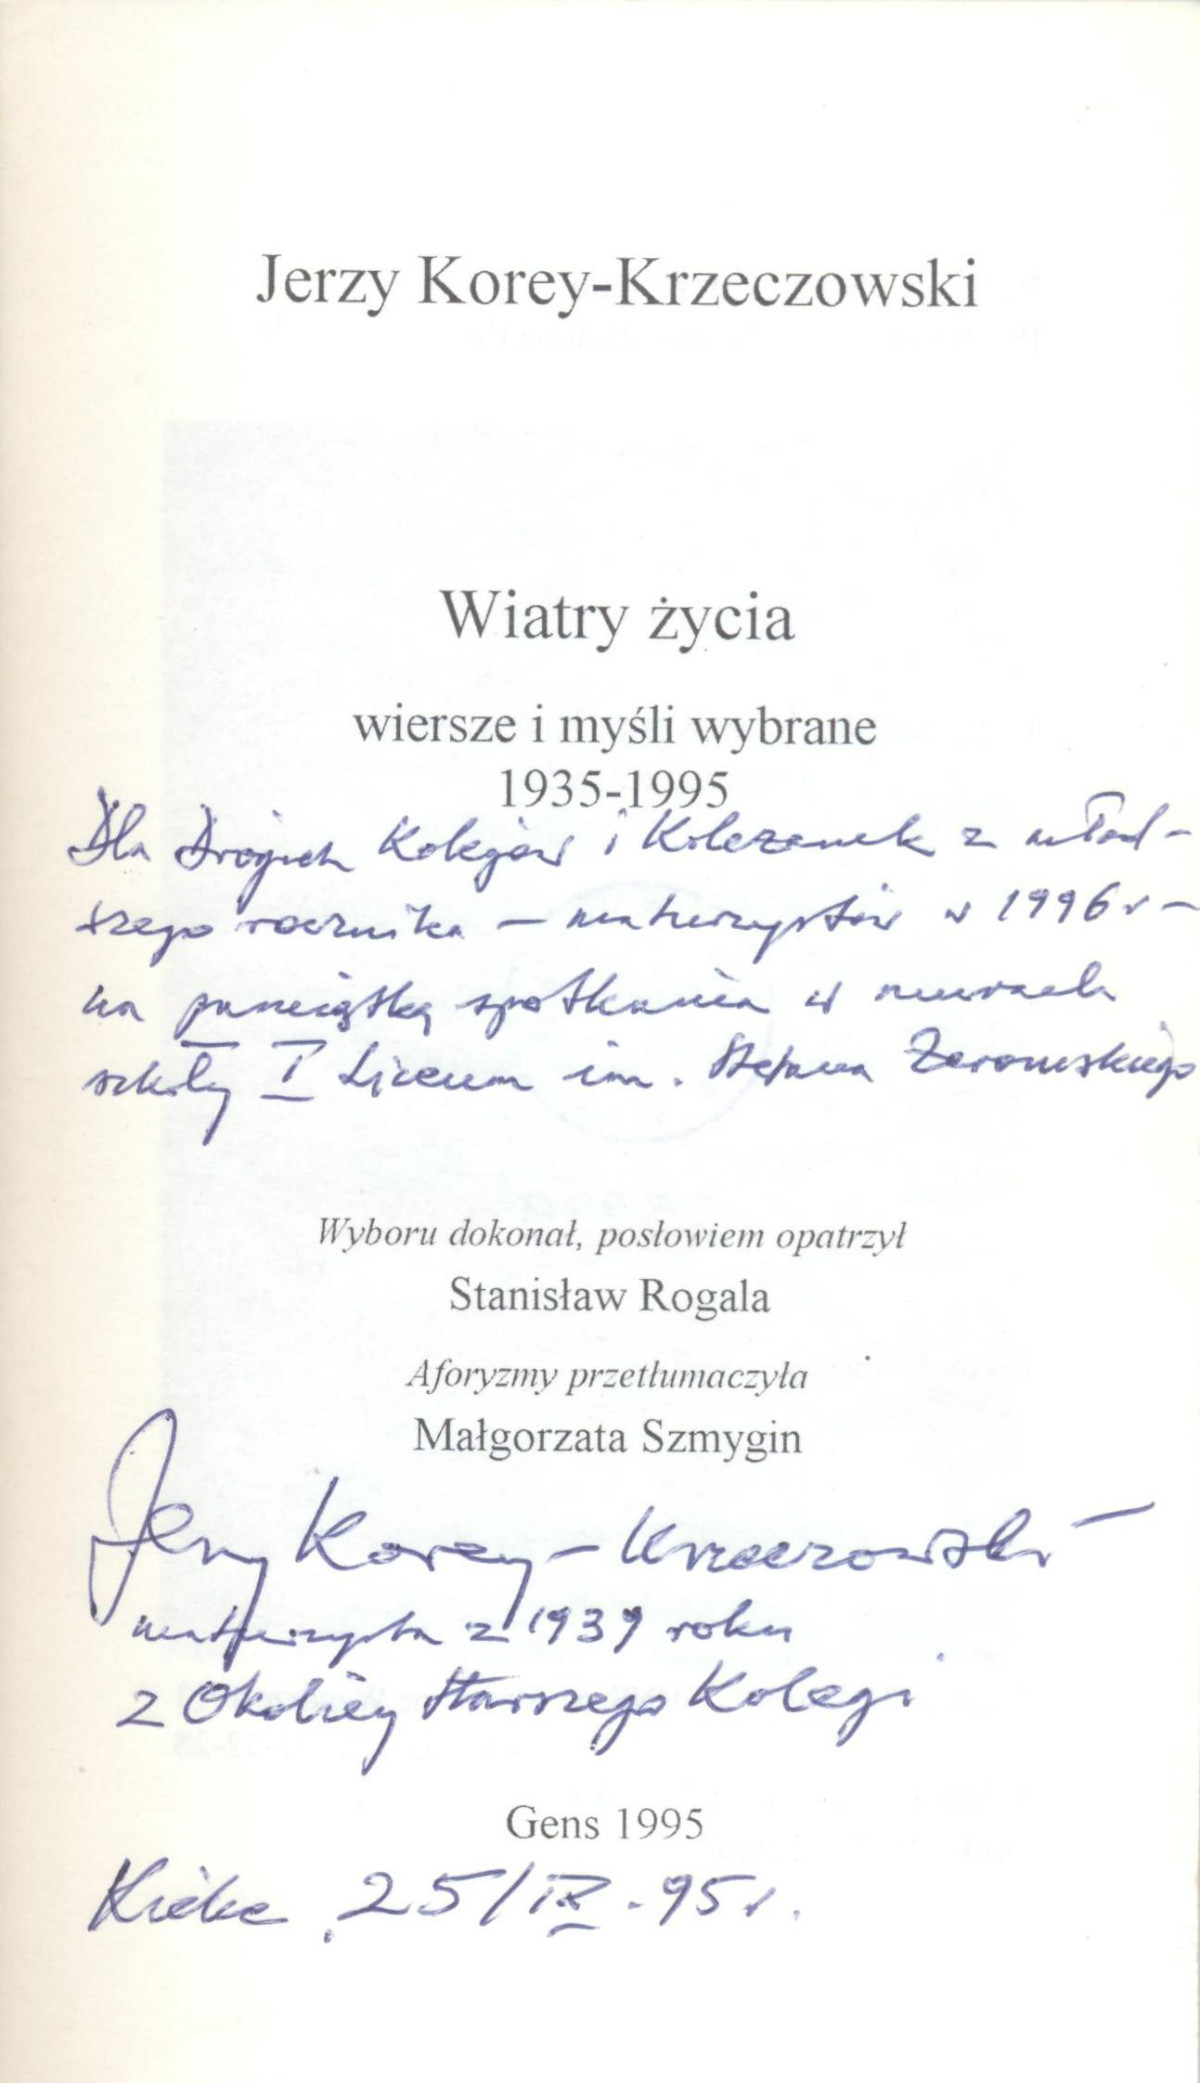 Jerzy Korey-Krzeczowski
Wiatry życia
wiersze i myśli wybrane
1935-1995
Dla Drogich Kolegów i Koleżanek z młod-
szego rocznika – maturzystów w 1996 r –
na pamiątkę spotkania w murach
szkoły I Liceum im. Stefana Żeromskiego
Wyboru dokonał, posłowiem opatrzył
Stanisław Rogala
Aforyzmy przetłumaczyła
Małgorzata Szmygin
Jerzy Korey-Krzeczowski –
maturzysta z 1939 roku
z starszego Kolegi
Gens 1995
Kielce, 25/IX.95 r.